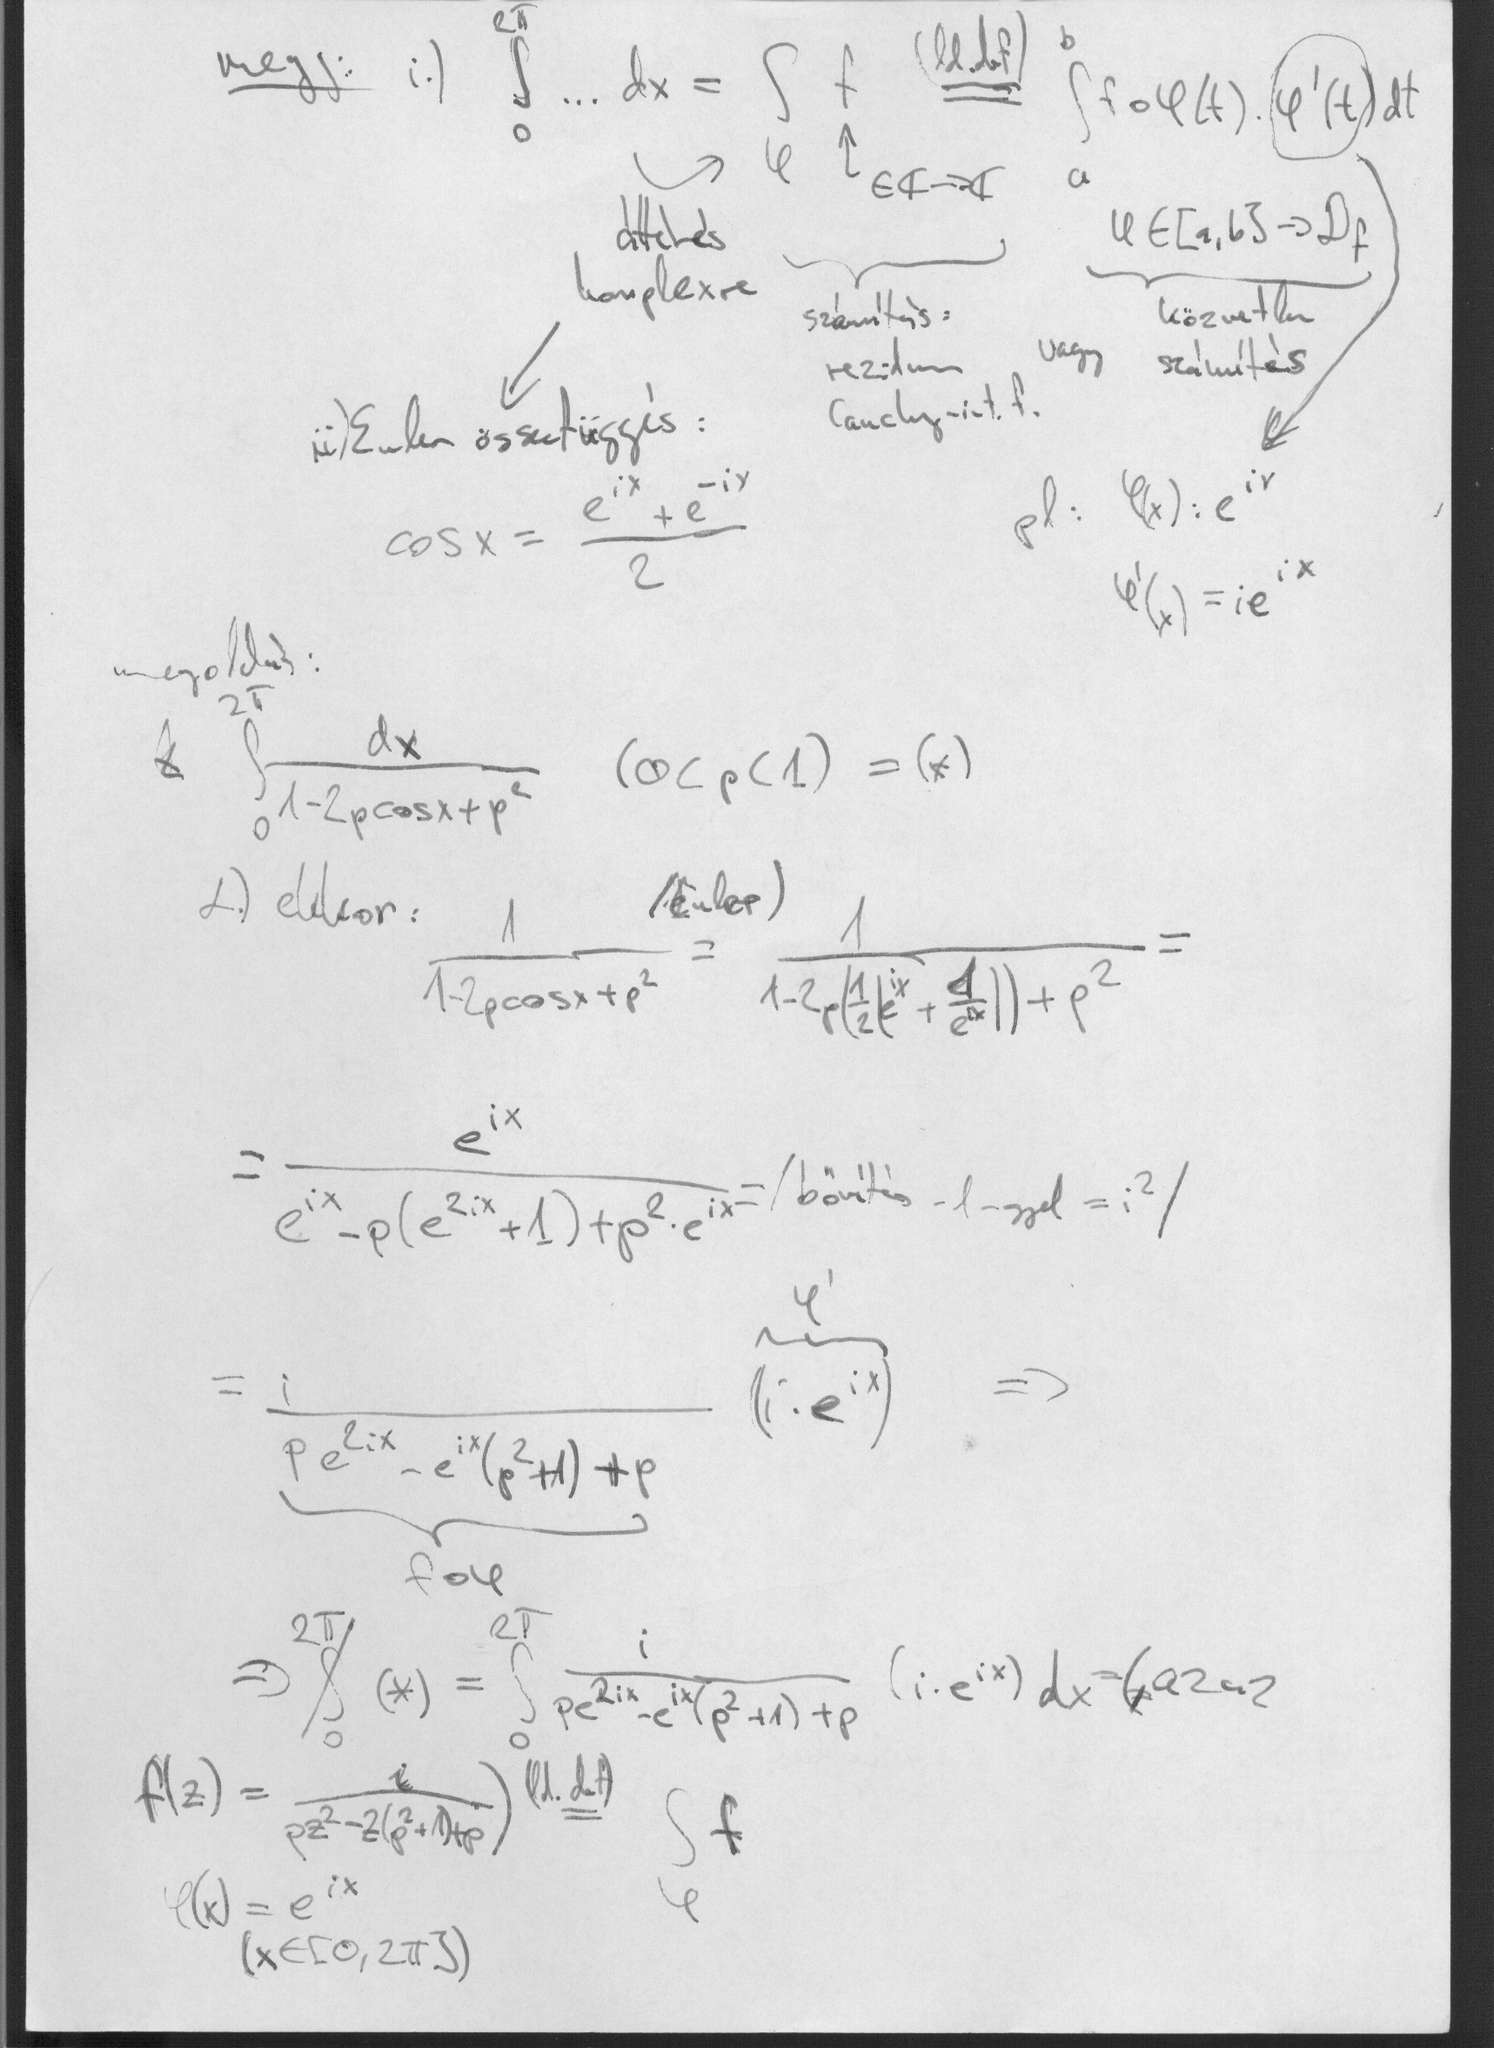 megj: i.) ∫₀^{2π} ... dx = ∫_φ f (ld. def) = ∫_a^b f∘φ(t)·φ'(t)dt
∈ℂ→ℂ
φ∈[a,b]→D_f
áttérés
komplexre
számítás:
reziduum
Cauchy-int. f.
vagy
közvetlen
számítás
ii) Euler összefüggés:
cos x = (e^{ix} + e^{-ix})/2
pl: φ(x): e^{ix}
φ'(x) = ie^{ix}
megoldás:
∫₀^{2π} dx/(1-2p cosx+p²) (0<p<1) = (*)
1.) ekkor: 1/(1-2p cosx+p²) = /Euler/ 1/(1-2p(1/2(e^{ix} + 1/e^{ix}))+p²) =
= e^{ix}/(e^{ix}-p(e^{2ix}+1)+p²·e^{ix}) = /bővítés -1-gyel = i²/
φ'
= i/(pe^{2ix} - e^{ix}(p²+1)+p) (i·e^{ix}) =>
f∘φ
=> ∫₀^{2π} (*) = ∫₀^{2π} i/(pe^{2ix}-e^{ix}(p²+1)+p) (i·e^{ix}) dx = (azaz
f(z) = i/(pz²-z(p²+1)+p)) (ld. def) = ∫_φ f
φ(x) = e^{ix}
(x∈[0,2π])